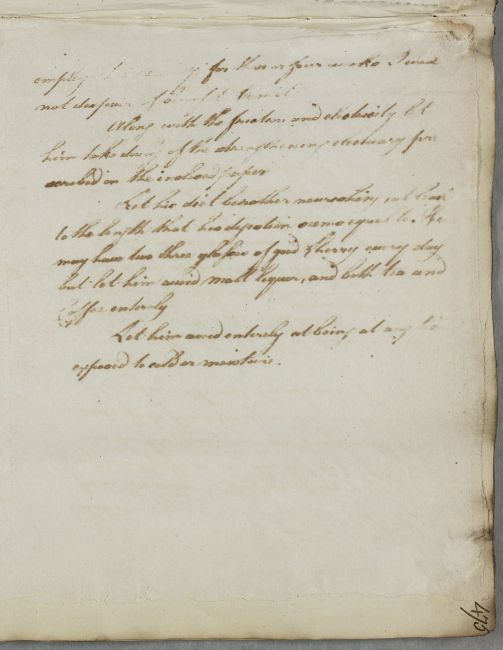 employ for three or four weeks I would
not despair of
Along with the friction and electricity let
him take daily of the strengthening electuary pre
scribed on the inclosed paper
Let his diet be rather nourishing at least
to the length that his digestion seems equal to. He
may have two three glasses of good Sherry every day
but let him avoid malt liquor, and both tea and
Coffee entirely
Let him avoid entirely at being at any
exposed to cold or moisture.
475